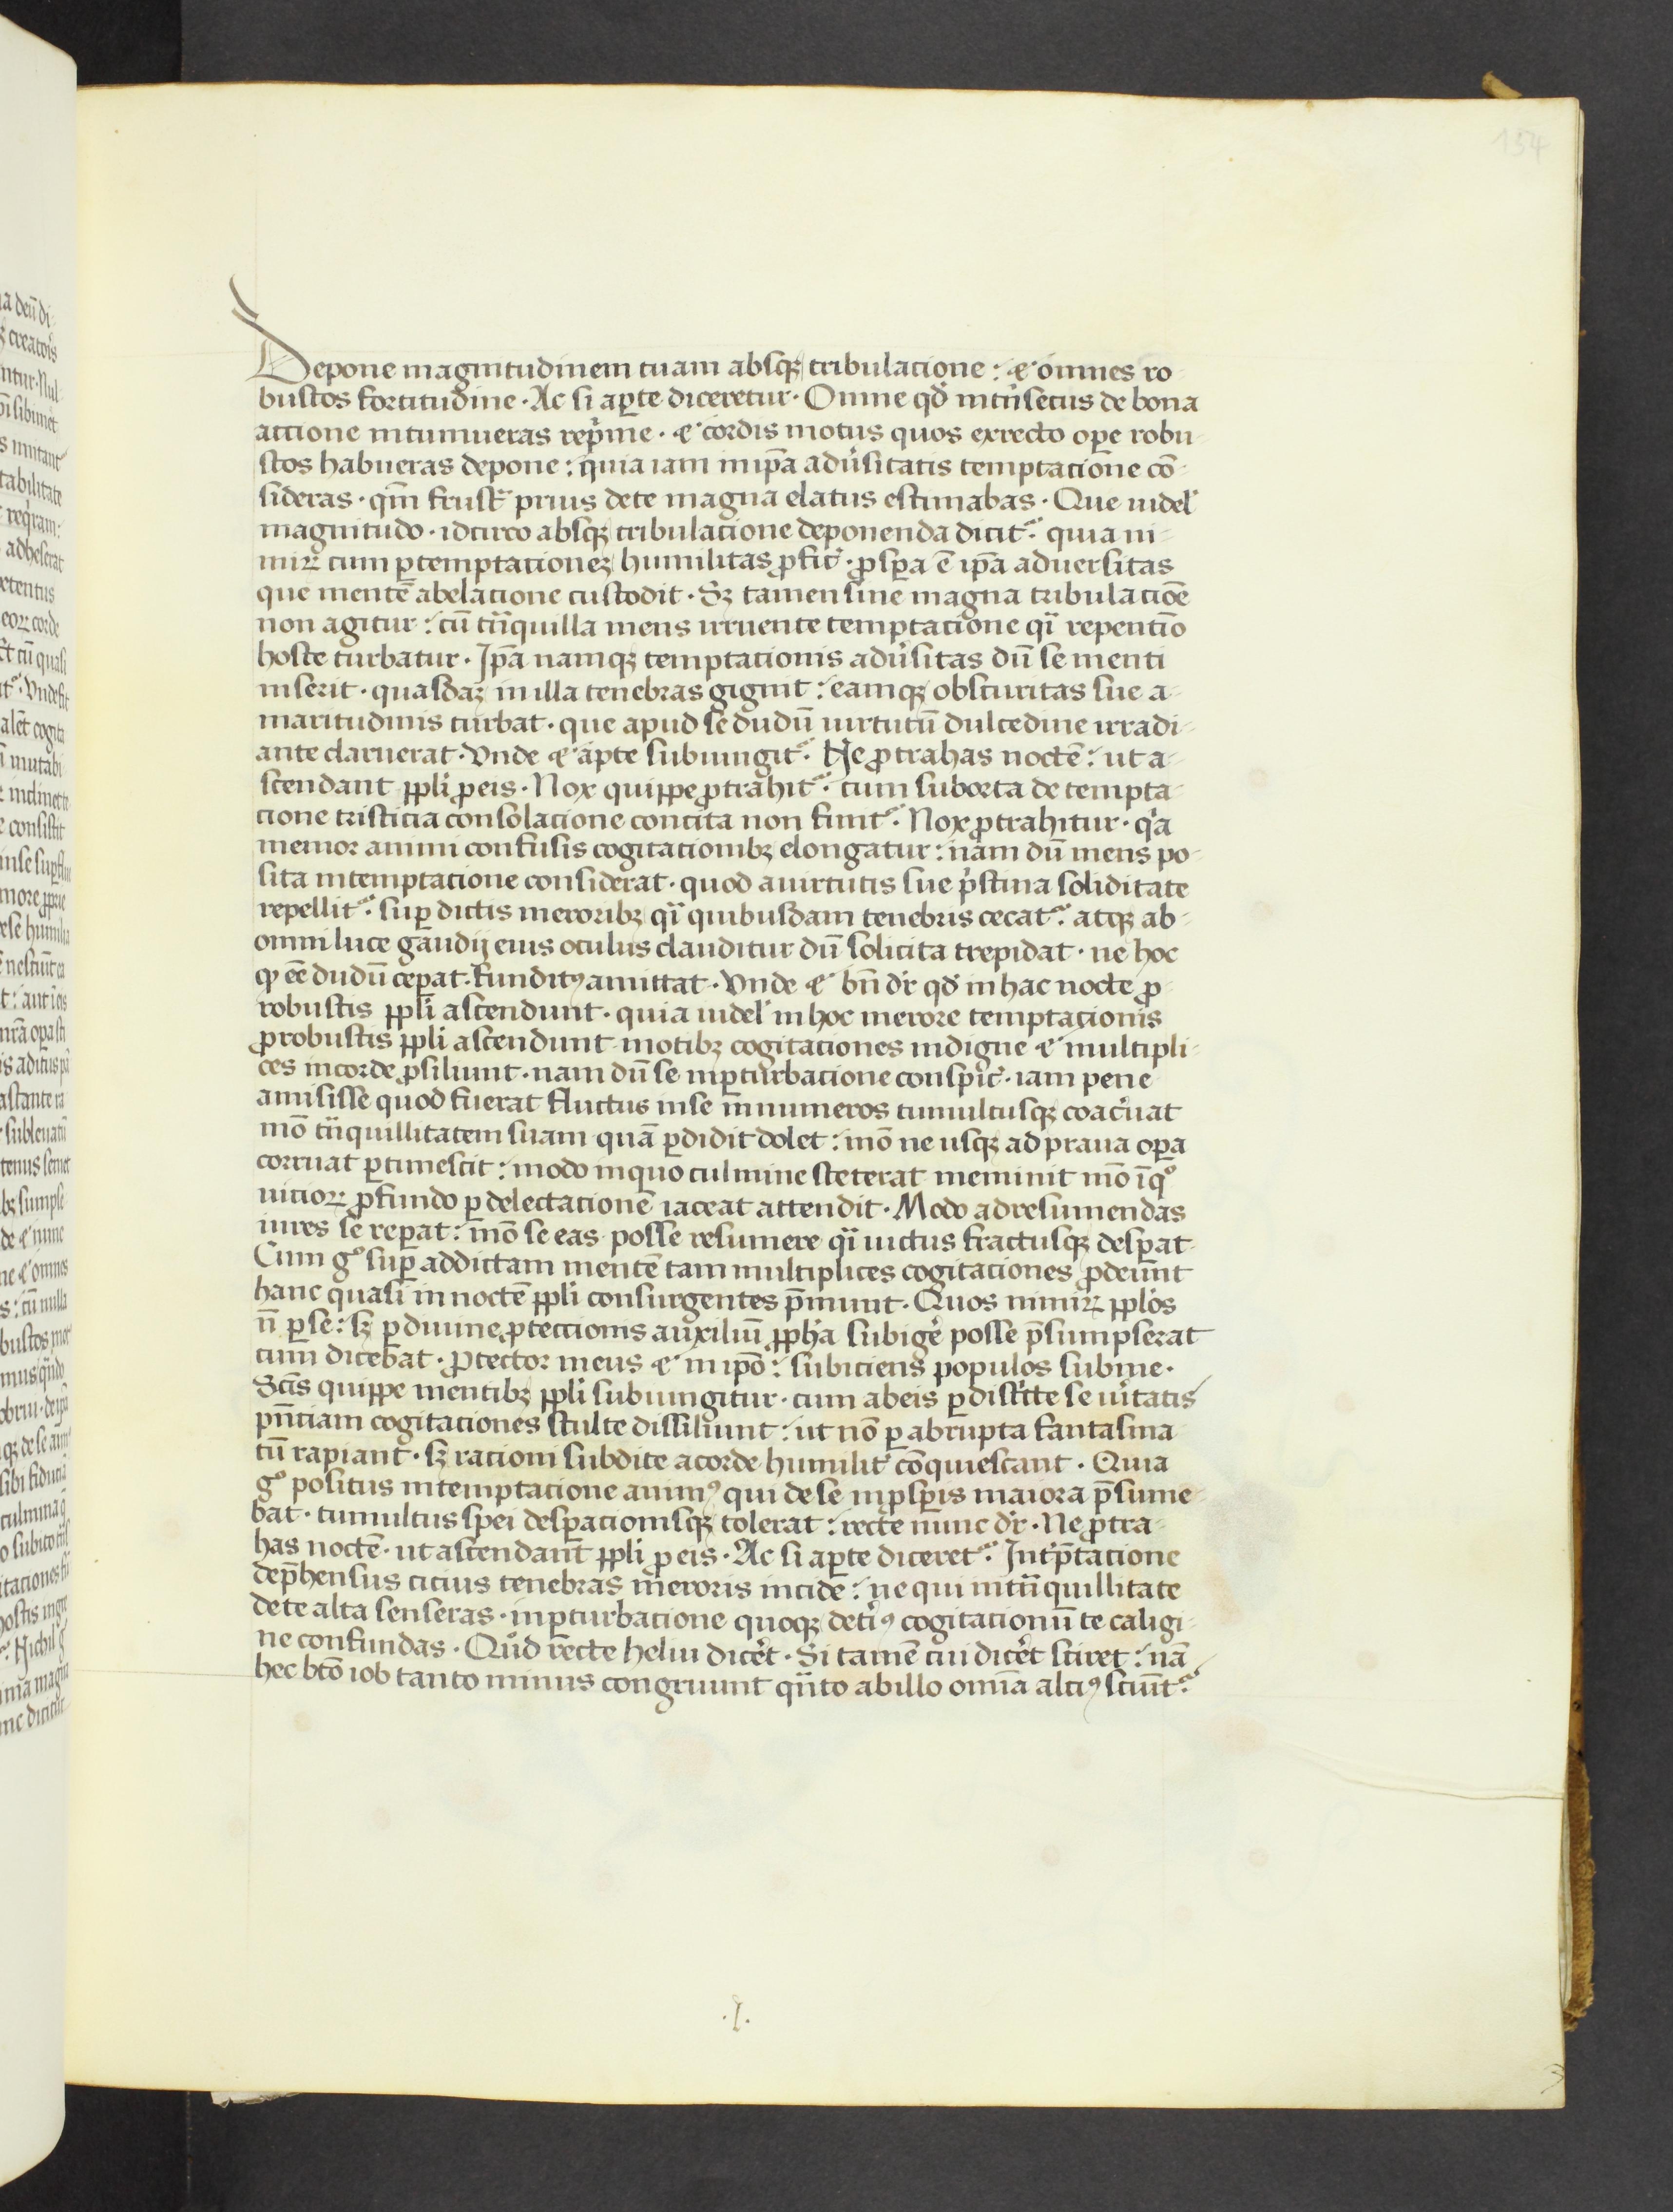 154
Depone magnitudinem tuam absqꝫ tribulacione : ⁊ omnes ro
bustos fortitudine · Ac si aꝑte diceretur · Omne qđ intͥnsecus de bona
accione intumueras repͥme · ⁊ cordis motus quos exrecto oꝑe robu-
stos habueras depone : quia iam inip̄a adu͛sitatis temptacione cō-
sideras · qm̄ frustᷓ prius dete magna elatus estimabas · Que uidelꝫ
magnitudo · idcirco absqꝫ tribulacione deponenda dicit᷑ · quia ni-
miꝝ cum ꝑtemptacionem humilitas ꝓfic̄ · ꝓsꝑa ē ip̄a aduersitas
que mentē abelacione custodit · Sꝫ tamen sine magna tribulacōe
non agitur : cū tᷓnquilla mens irruente temptacione qᷓi repentīo
hoste turbatur · Ip̄a namqꝫ temptacionis adu͛sitas dū se menti
inserit · quasdaꝫ inilla tenebras gignit : eamqꝫ obscuritas sue a-
maritudinis turbat · que apud se dudū uirtutū dulcedine irradi-
ante claruerat · Vnde ⁊ aꝑte subiungit᷑ · Ne ꝓtrahas noctē : ut a-
scendant ppl̄i ꝓeis · Nox quippe ꝓtrahit᷑ · cum suborta de tempta-
cione tristicia consolacione concita non finit᷑ · Nox ꝓtrahitur · qͥa
memor animi confusis cogitacionibꝫ elongatur : nam dū mens po-
sita intemptacione considerat · quod auirtutis sue pͥstina soliditate
repellit᷑ · suꝑ dictis meroribꝫ qᷓi quibusdam tenebris cecat᷑ · atqꝫ ab-
omni luce gaudij eius oculus clauditur dū solicita trepidat · ne hoc
qꝫ eē dudū ceꝑat · funditꝰ amittat · Vnde ⁊ bn̄ dr̄ qđ inhac nocte ꝓ-
robustis ppl̄i ascendunt · quia uidelꝫ inhoc merore temptacionis
ꝓrobustis ppl̄i ascendunt motibꝫ cogitaciones indigne ⁊ multipli-
ces incorde ꝓsiliunt · nam dū se inꝑturbacione conspic̄ · iam pene
amisisse quod fuerat fluctus inse innumeros tumultusqꝫ coac͛uat
mō tᷓnquillitatem suam quā ꝑdidit dolet : mō ne usqꝫ ad praua oꝑa
corruat ꝑtimescit : modo inquo culmine steterat meminit mō īqͦ
uicioꝝ ꝓfundo ꝑ delectacionē iaceat attendit · Modo adresumendas
uires se reꝑat : mō se eas posse resumere qᷓi uictus fractusqꝫ desꝑat
Cum gͦ suꝑ addictam mentē tam multiplices cogitaciones ꝓdeunt
hanc quasi innoctē ppl̄i consurgentes p̄munt · Quos nimiꝝ ppl̄os
n̄ ꝑse : sꝫ ꝑdiuine ꝓteccionis auxiliū pph̄a subige͛ posse p̄sumpserat
cum dicebat · ꝓtector meus ⁊ inip̄o : subiciens populos subme ·
Scīs quippe mentibꝫ ppl̄i subiungitur · cum abeis ꝑdistͥcte se u͛itatis
pn̄ciam cogitaciones stulte dissiliunt : ut nō ꝑabrupta fantasma
tū rapiant · sꝫ racioni subdite acorde humilit͛ cōquiescant · Quia
gͦ positus intemptacione animꝰ qui dese inꝓsꝑis maiora p̄sume-
bat · tumultus spei desꝑacionisqꝫ tolerat : recte nunc dr̄ · Ne ꝓtra-
has noctē · ut ascendant ppl̄i ꝓ eis · Ac si aꝑte diceret᷑ · Intp̄tacione
dep̄hensus cicius tenebras meroris incide : ne qui intᷓnquillitate
dete alta senseras · inꝑturbacione quoqꝫ det͛iꝰ cogitacionū te caligi-
ne confundas · Quͦd recte heliu dice͛t · Si tamē cui dice͛t sciret : nā
hec btō iob tanto minus congruunt qᷓnto abillo omīa alciꝰ sciūt᷑
· I ·